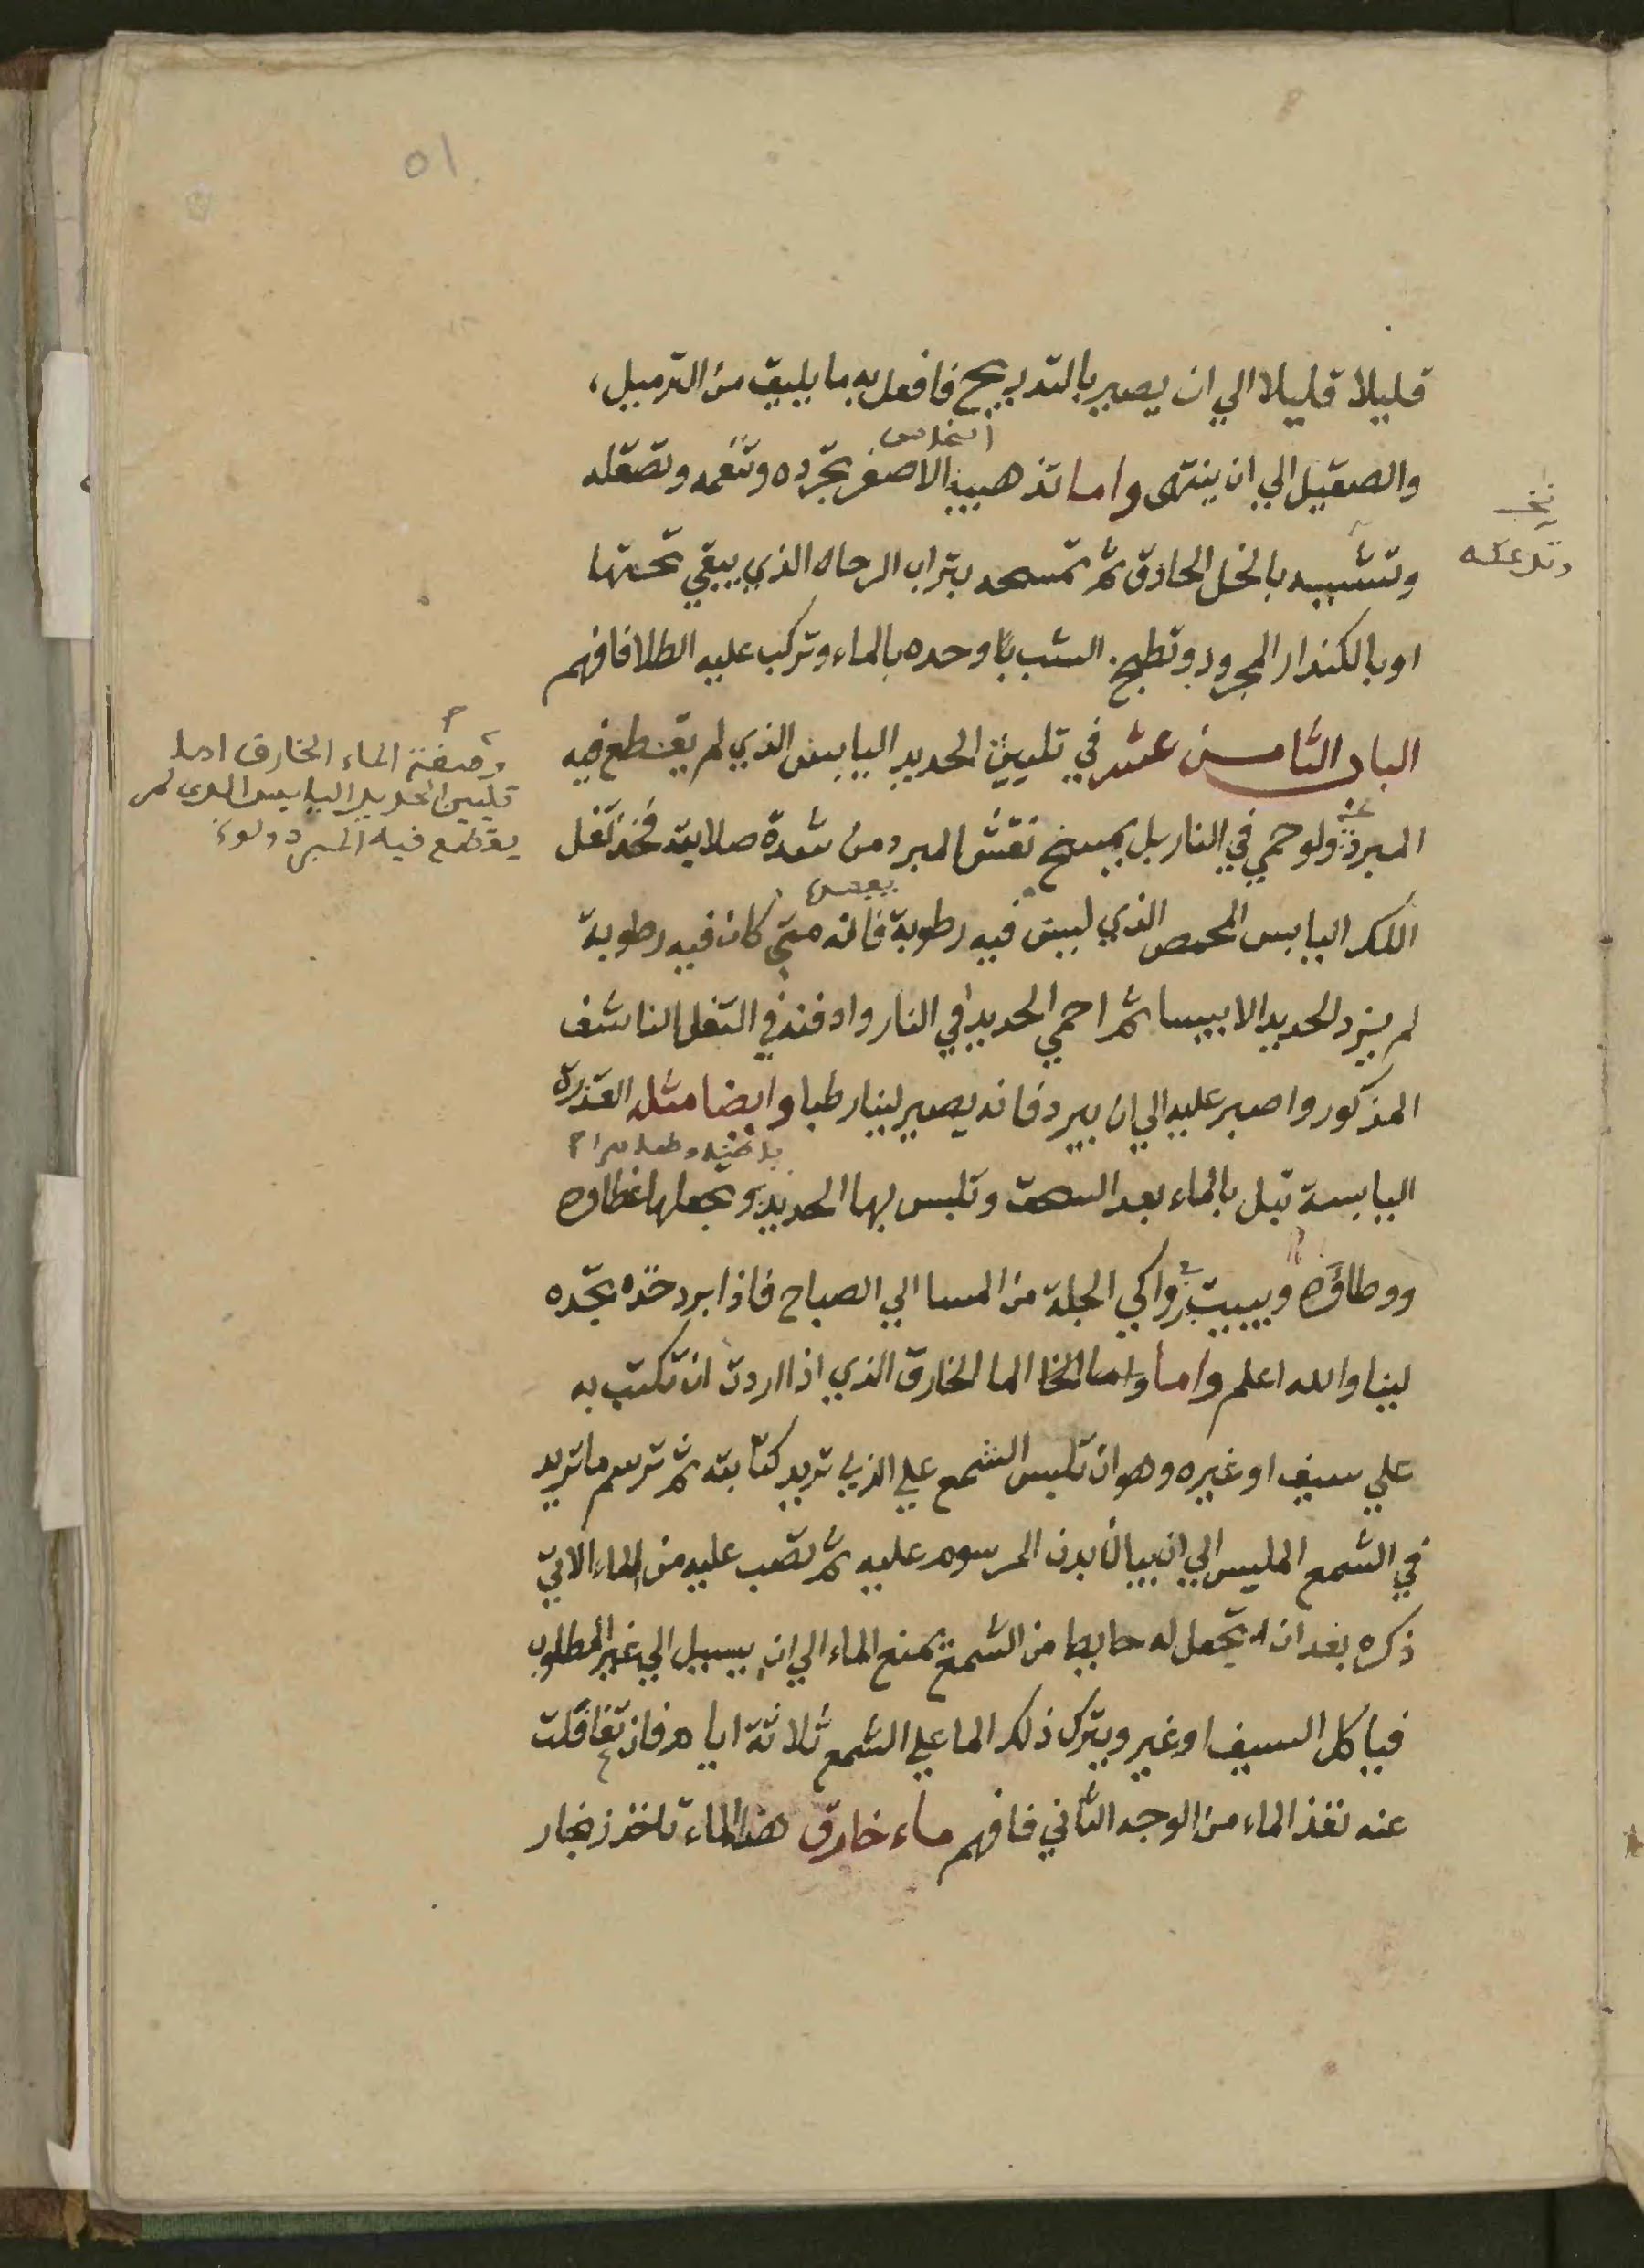 ٥١
قليلا قليلا الي ان يصير بالتدريج فافعل به ما يليق من الترميل،
النحاس
والصقيل الي ان ينتهى واما تذهيب الاصفر تجرده وتنعمه وتصقله
وتشببه بالخل الحادق ثم تمسحه بتراب الرحاه الذي يبقي تحتها
او بالكندار المجرود وتطبخ الشب بها وحده بالماء وتركب عليه الطلا فافهم
الباب الثامن عشر في تليين الحديد اليابس الذي لم يقطع فيه
وصفة الماء الخارق اما
تليين الحديد اليابس الذى لم
يقطع فيه المبرد ولو
المبرد ولو حمي في النار بل يمسخ نقش المبرد من شدة صلابته فخذ تفل
اللك اليابس المحمص الذي ليس فيه رطوبة فانه متي كان فيه رطوبة
لم يزد الحديد الا يبسا ثم احمي الحديد في النار وادفنه في التفل الناشف
المذكور واصبر عليه الي ان يبرد فانه يصير لينا رطبا وايضا مثله العذرة
اليابسة تبل بالماء بعد السحق وتلبس بها الحديد وتجعلها غطاوه
ووطاؤه ويبيت في واكي الجلة من المسا الي الصباح فاذا برد خذه تجده
لينا والله اعلم واما واما الخا الما الخارق الذي اذا اردت ان تكتب به
علي سيف او غيره وهو ان تلبس الشمع علي الذي تريد كتابته ثم ترسم ما تريد
في الشمع الملبس الي ان يبان بدن المرسوم عليه ثم تصب عليه من الماء الاتي
ذكره بعد ان تجعل له حايطا من الشمع تمنع الماء الي ان يسيل الي غير المطلوب
فياكل السيف او غير ويترك ذلك الما علي الشمع ثلاثة ايام فان تغافلت
عنه نفذ الماء من الوجه الثاني فافهم ماء خارق هذا الماء تاخذ زنجار